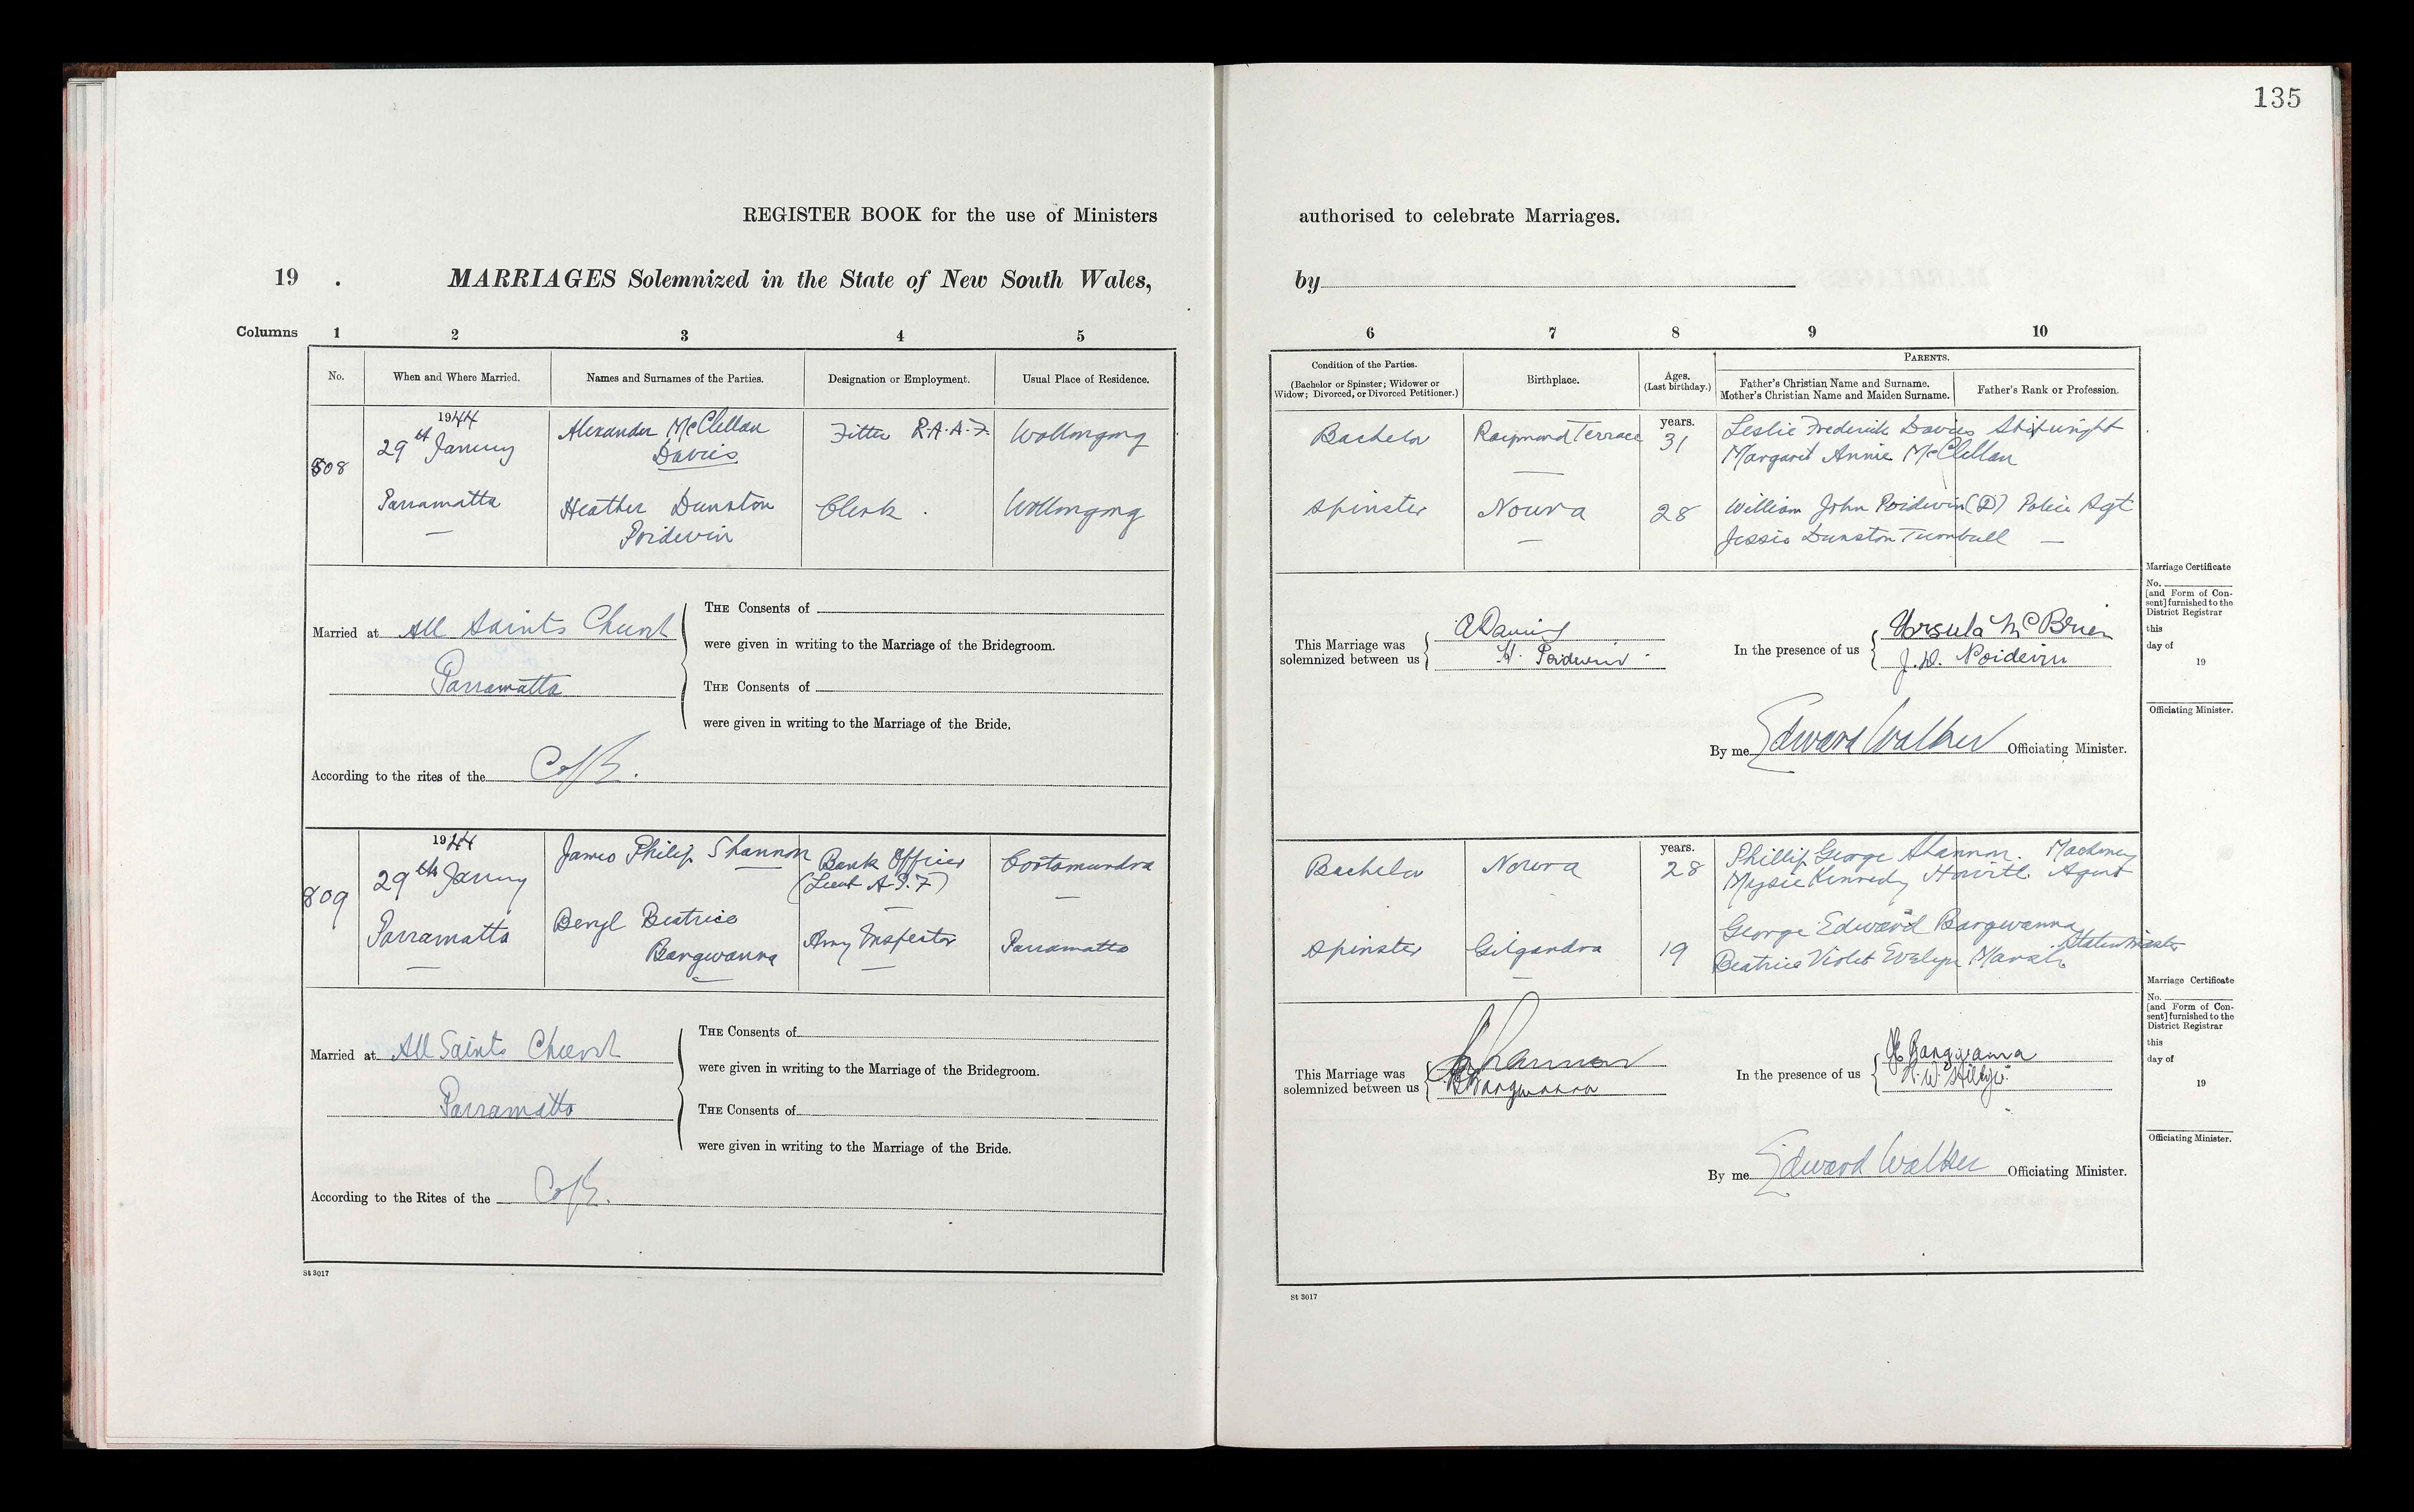 135
REGISTER BOOK for the use of Ministers authorised to celebrate Marriages.
19 . MARRIAGES Solemnized in the State of New South Wales, by
Columns 1 2 3 4 5 6 7 8 9 10
No. When and Where Married. Names and Surnames of the Parties. Designation or Employment. Usual Place of Residence.
Condition of the Parties.
(Bachelor or Spinster; Widower or
Widow; Divorced, or Divorced Petitioner.)
Birthplace.
Ages.
(Last birthday.)
PARENTS.
Father's Christian Name and Surname.
Mother's Christian Name and Maiden Surname.
Father's Rank or Profession.
808
1944
29th January
Parramatta
Alexander McClellan
Davies
Fitter R.A.A.F.
Wollongong
Heather Dunston
Poidevin
Clerk .
Wollongong
Bachelor
Raymond Terrace
years.
31
Leslie Frederick Davies Shipwright
Margaret Annie McClellan
Spinster
Nowra
28
William John Poidevin (D) Police Sgt
Jessie Dunston Turnbull
Married at All Saints Church
Parramatta
THE Consents of
were given in writing to the Marriage of the Bridegroom.
THE Consents of
were given in writing to the Marriage of the Bride.
According to the rites of the C of E.
This Marriage was
solemnized between us
A Davies
H. Poidevin
In the presence of us
Ursula McBrien
J. D. Poidevin
By me Edward Walker Officiating Minister.
Marriage Certificate
No.
[and Form of Con-
sent] furnished to the
District Registrar
this
day of
19
Officiating Minister.
809
1944
29th January
Parramatta
James Philip Shannon
Bank Officer
(Lieut A.I.F)
Cootamundra
Beryl Beatrice
Bargwanna
Army Inspector
Parramatta
Bachelor
Nowra
years.
28
Phillip George Shannon. Machinery
Maysie Kennedy Howitt. Agent
Spinster
Gilgandra
19
George Edward Bargwanna
Stationmaster
Beatrice Violet Evelyn Marsh
Married at All Saints Church
Parramatta
THE Consents of
were given in writing to the Marriage of the Bridegroom.
THE Consents of
were given in writing to the Marriage of the Bride.
According to the Rites of the C of E.
This Marriage was
solemnized between us
Shannon
B Bargwanna
In the presence of us
Bargwanna
By me Edward Walker Officiating Minister.
Marriage Certificate
No.
[and Form of Con-
sent] furnished to the
District Registrar
this
day of
19
Officiating Minister.
St 3017
St 3017